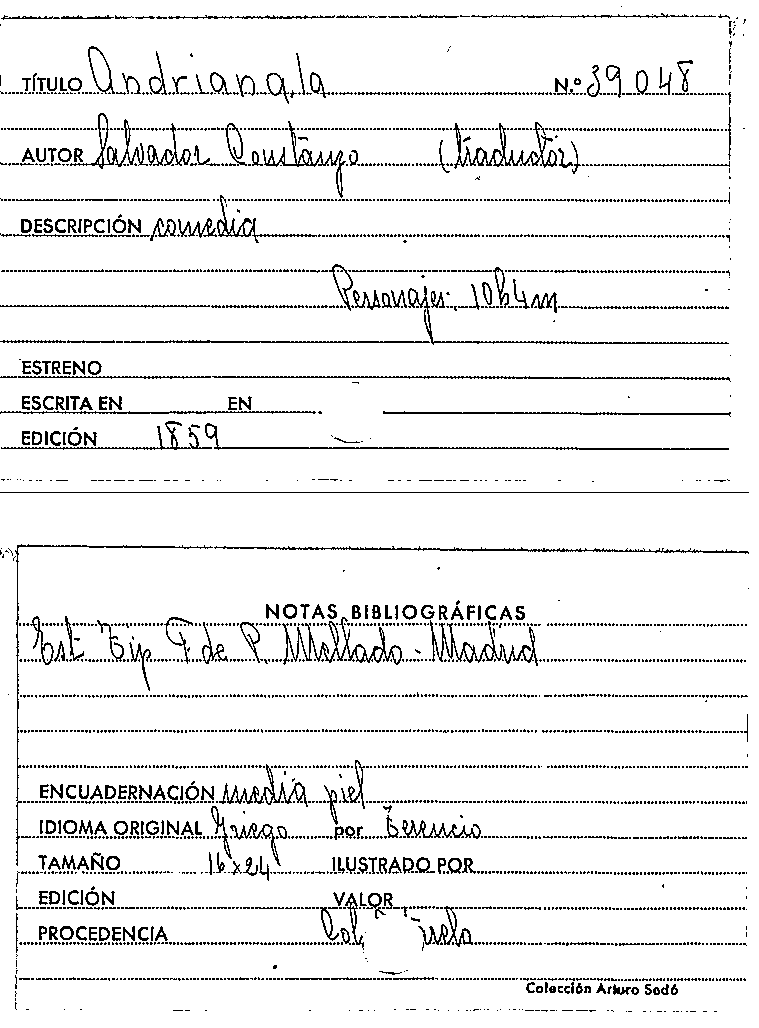 TÍTULO Andriana, la N.º 39048
AUTOR Salvador Constanzo (traductor)
DESCRIPCIÓN comedia
Personajes. 10h4m
ESTRENO
ESCRITA EN EN
EDICIÓN 1859
NOTAS BIBLIOGRÁFICAS
Est Tip F. de P. Mellado - Madrid
ENCUADERNACIÓN media piel
IDIOMA ORIGINAL Griego por Terencio
TAMAÑO 16x24 ILUSTRADO POR
EDICIÓN VALOR
PROCEDENCIA Col.
Colección Arturo Sedó